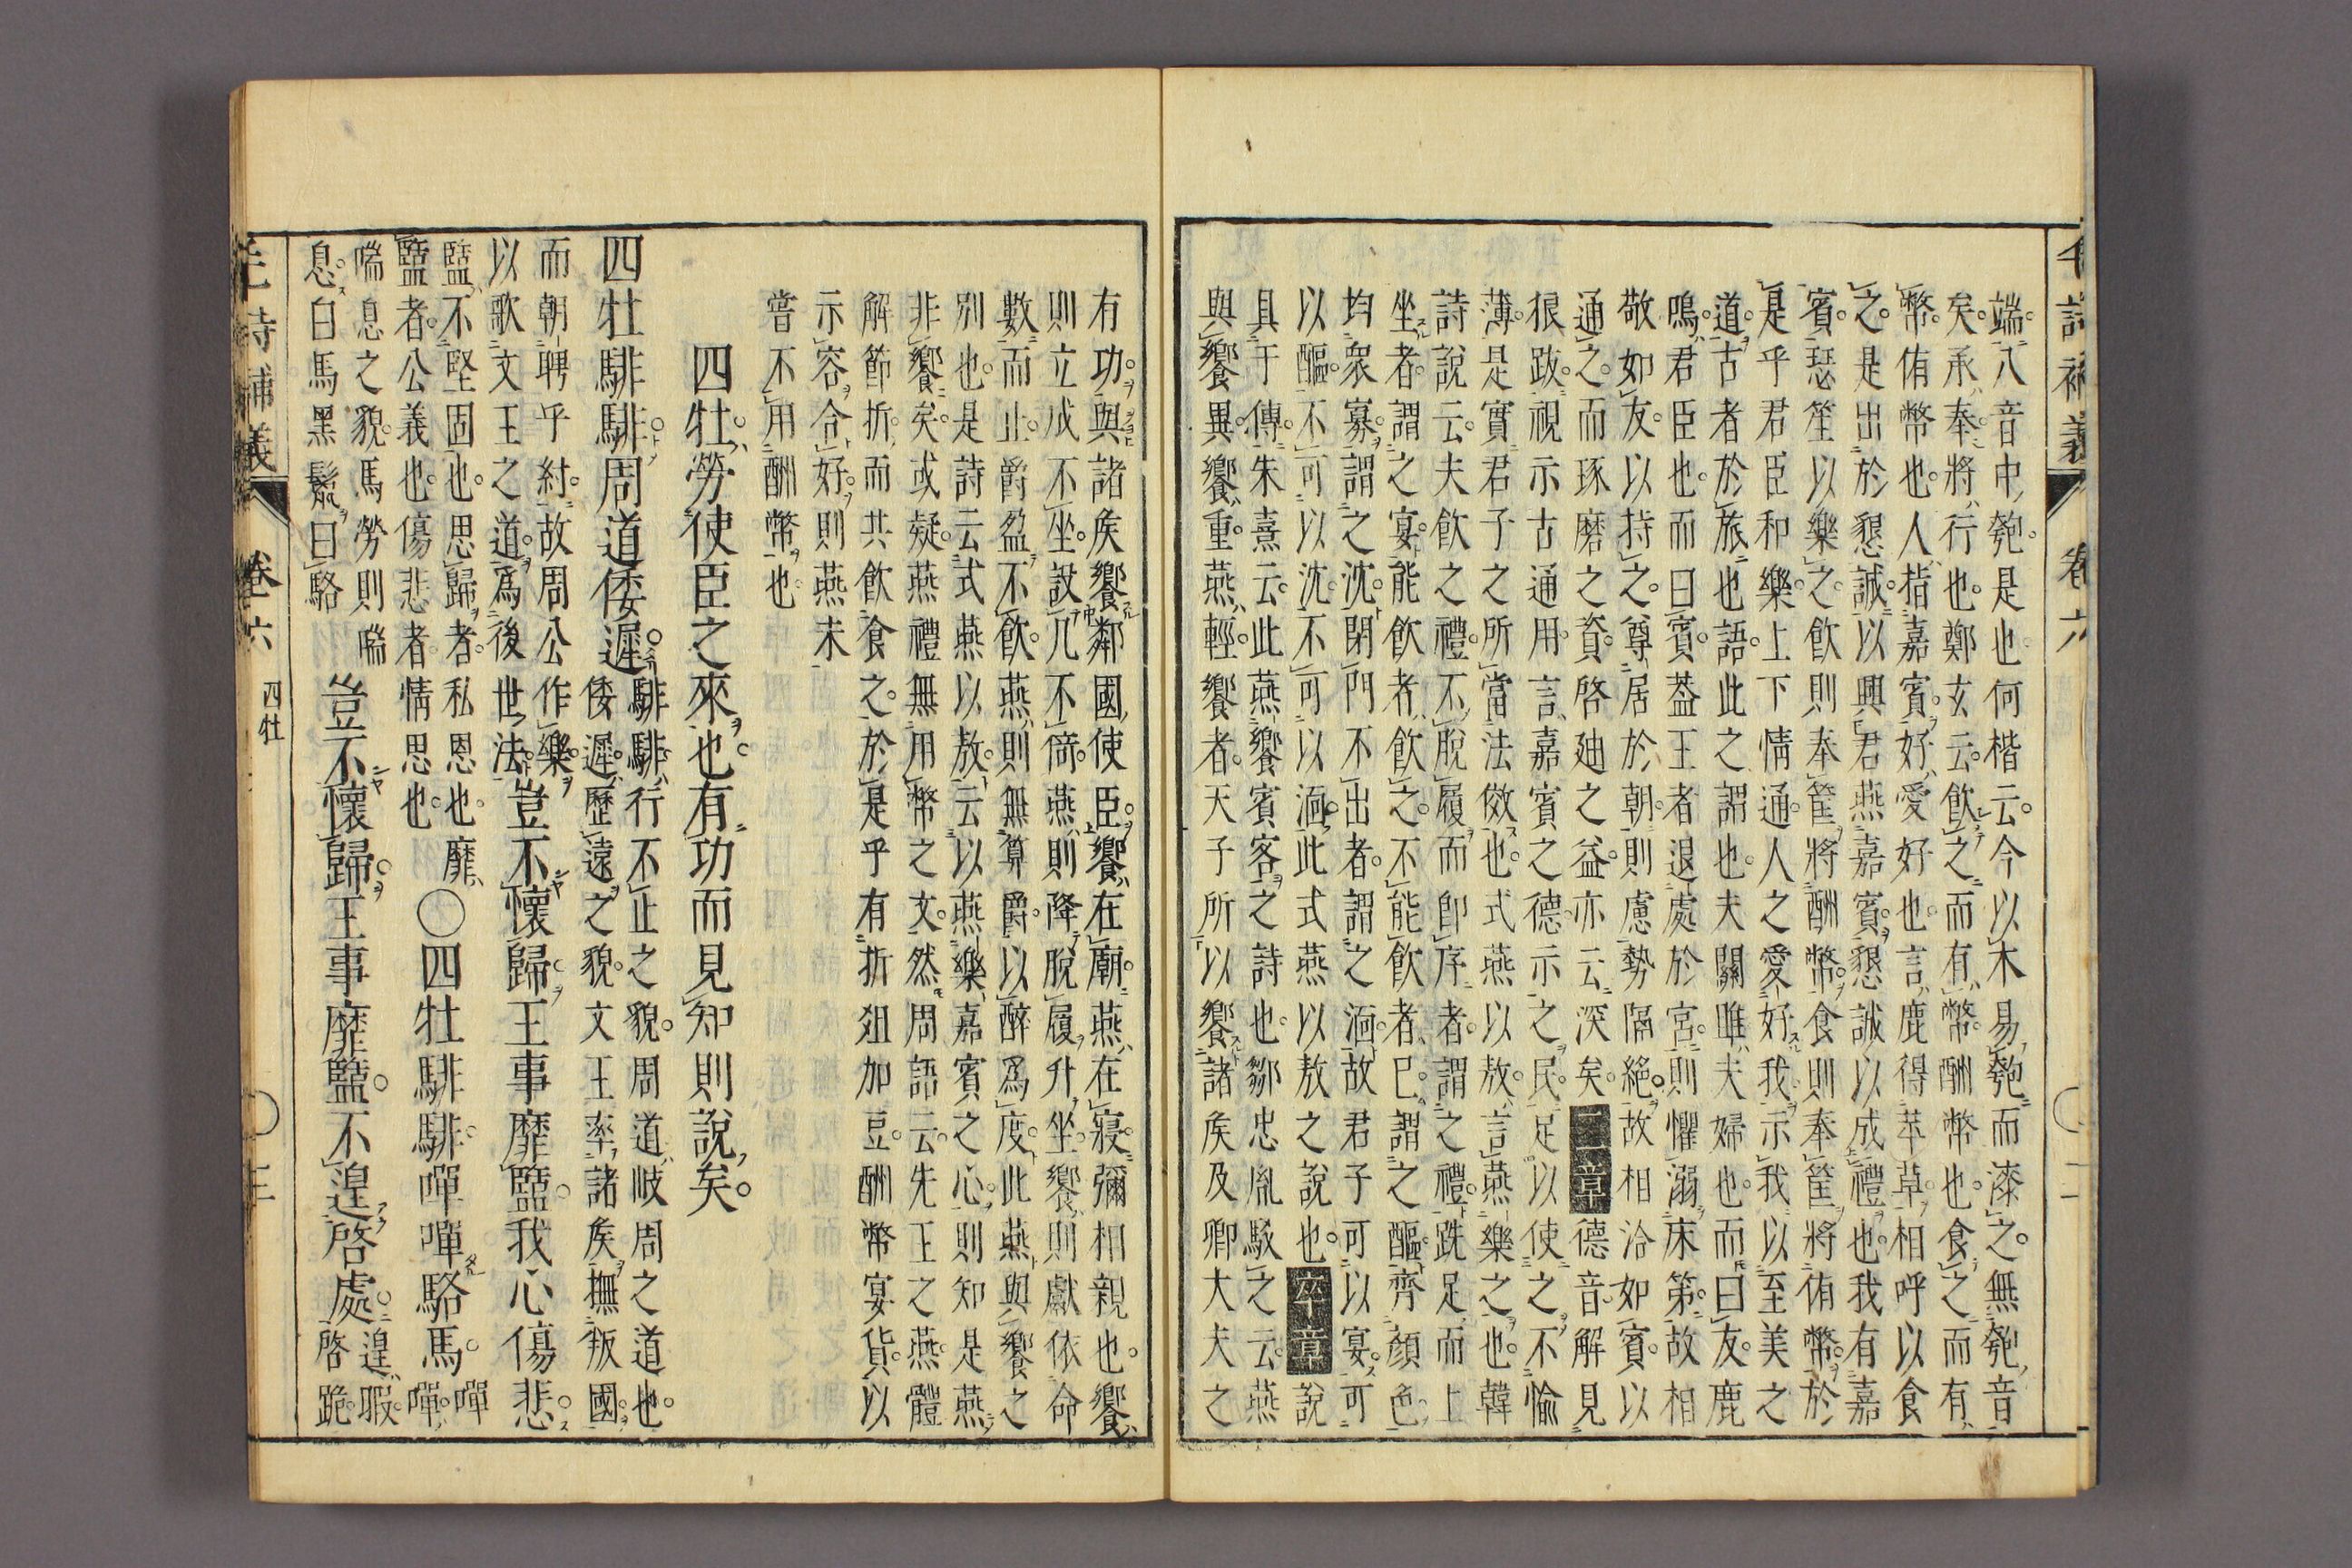 毛詩補義 卷六 二
端八音中匏是也何楷云今以木易匏而漆之無匏音
矣承奉將行也鄭玄云飲之而有幣酬幣也食之而有
幣侑幣也人指嘉賓好愛好也言鹿得苹草相呼以食
之是出於懇誠以興君燕嘉賓懇誠以成禮也我有嘉
賓瑟笙以樂之飲則奉筐將酬幣食則奉筐將侑幣於
是乎君臣和樂上下情通人之愛好我示我以至美之
道古者於旅也語此之謂也夫關雎夫婦也而曰友鹿
鳴君臣也而曰賓葢王者退處於宮則懼溺床第故相
敬如友以持之尊居於朝則慮勢隔絕故相洽如賓以
通之而琢磨之資啓廸之益亦云深矣二章德音解見
狼跋視示古通用言嘉賓之德示之民足以使之不愉
薄是實君子之所當法傚也式燕以敖言燕樂之也韓
詩說云夫飲之禮不脫履而卽序者謂之禮跣足而上
坐者謂之宴能飲者飲之不能飲者已謂之醧齊顏色
均衆寡謂之沈閉門不出者謂之湎故君子可以宴可
以醧不可以沈不可以湎此式燕以敖之說也卒章說
具于傳朱熹云此燕饗賓客之詩也鄒忠胤駁之云燕
與饗異饗重燕輕饗者天子所以饗諸矦及卿大夫之
有功與諸矦饗鄰國使臣饗在廟燕在寢彌相親也饗
則立成不坐設几不倚燕則降脫履升坐饗則獻依命
數而止爵盈不飲燕則無算爵以醉爲度此燕與饗之
別也是詩云式燕以敖云以燕樂嘉賓之心則知是燕
非饗矣或疑燕禮無用幣之文然周語云先王之燕體
解節折而共飲食之於是乎有折俎加豆酬幣宴貨以
示容合好則燕未
嘗不用酬幣也
四牡勞使臣之來也有功而見知則說矣
四牡騑騑周道倭遲騑騑行不止之貌周道岐周之道也
倭遲歷遠之貌文王率諸矦撫叛國
而朝聘乎紂故周公作樂
以歌文王之道爲後世法豈不懷歸王事靡盬我心傷悲
盬不堅固也思歸者私恩也靡
盬者公義也傷悲者情思也○四牡騑騑嘽嘽駱馬嘽嘽
喘息之貌馬勞則喘
息白馬黑鬣曰駱豈不懷歸王事靡盬不遑啓處遑暇
啓跪
毛詩補義 卷六 四牡 三